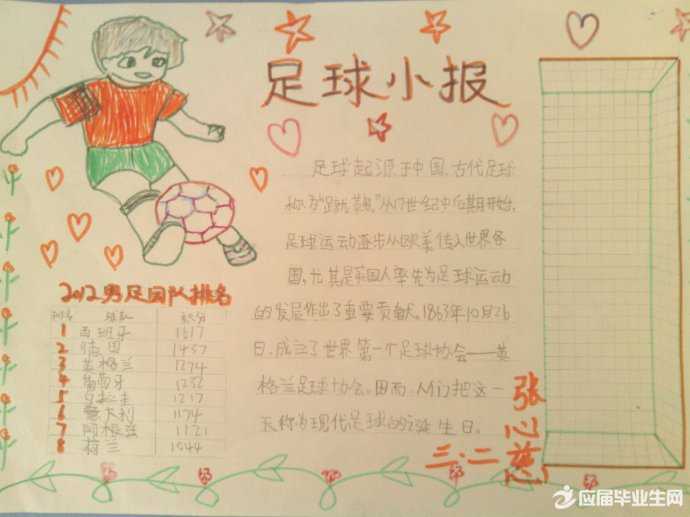 足球小报
足球起源于中国,古代足球
称为"蹴鞠"从17世纪中后期开始,
足球运动逐步从欧美传入世界各
国,尤其是英国人率先为足球运动
的发展作出了重要贡献。1863年10月26
日,成立了世界第一个足球协会——英
格兰足球协会。因而人们把这一
天称为现代足球的诞生日。
2012男足国队排名
排名 球队 积分
1 西班牙 1617
2 德国 1437
3 英格兰 1274
4 葡萄牙 1232
5 乌拉圭 1217
6 意大利 1174
7 阿根廷 1121
8 荷兰 1044
三.二
张心慈
应届毕业生网